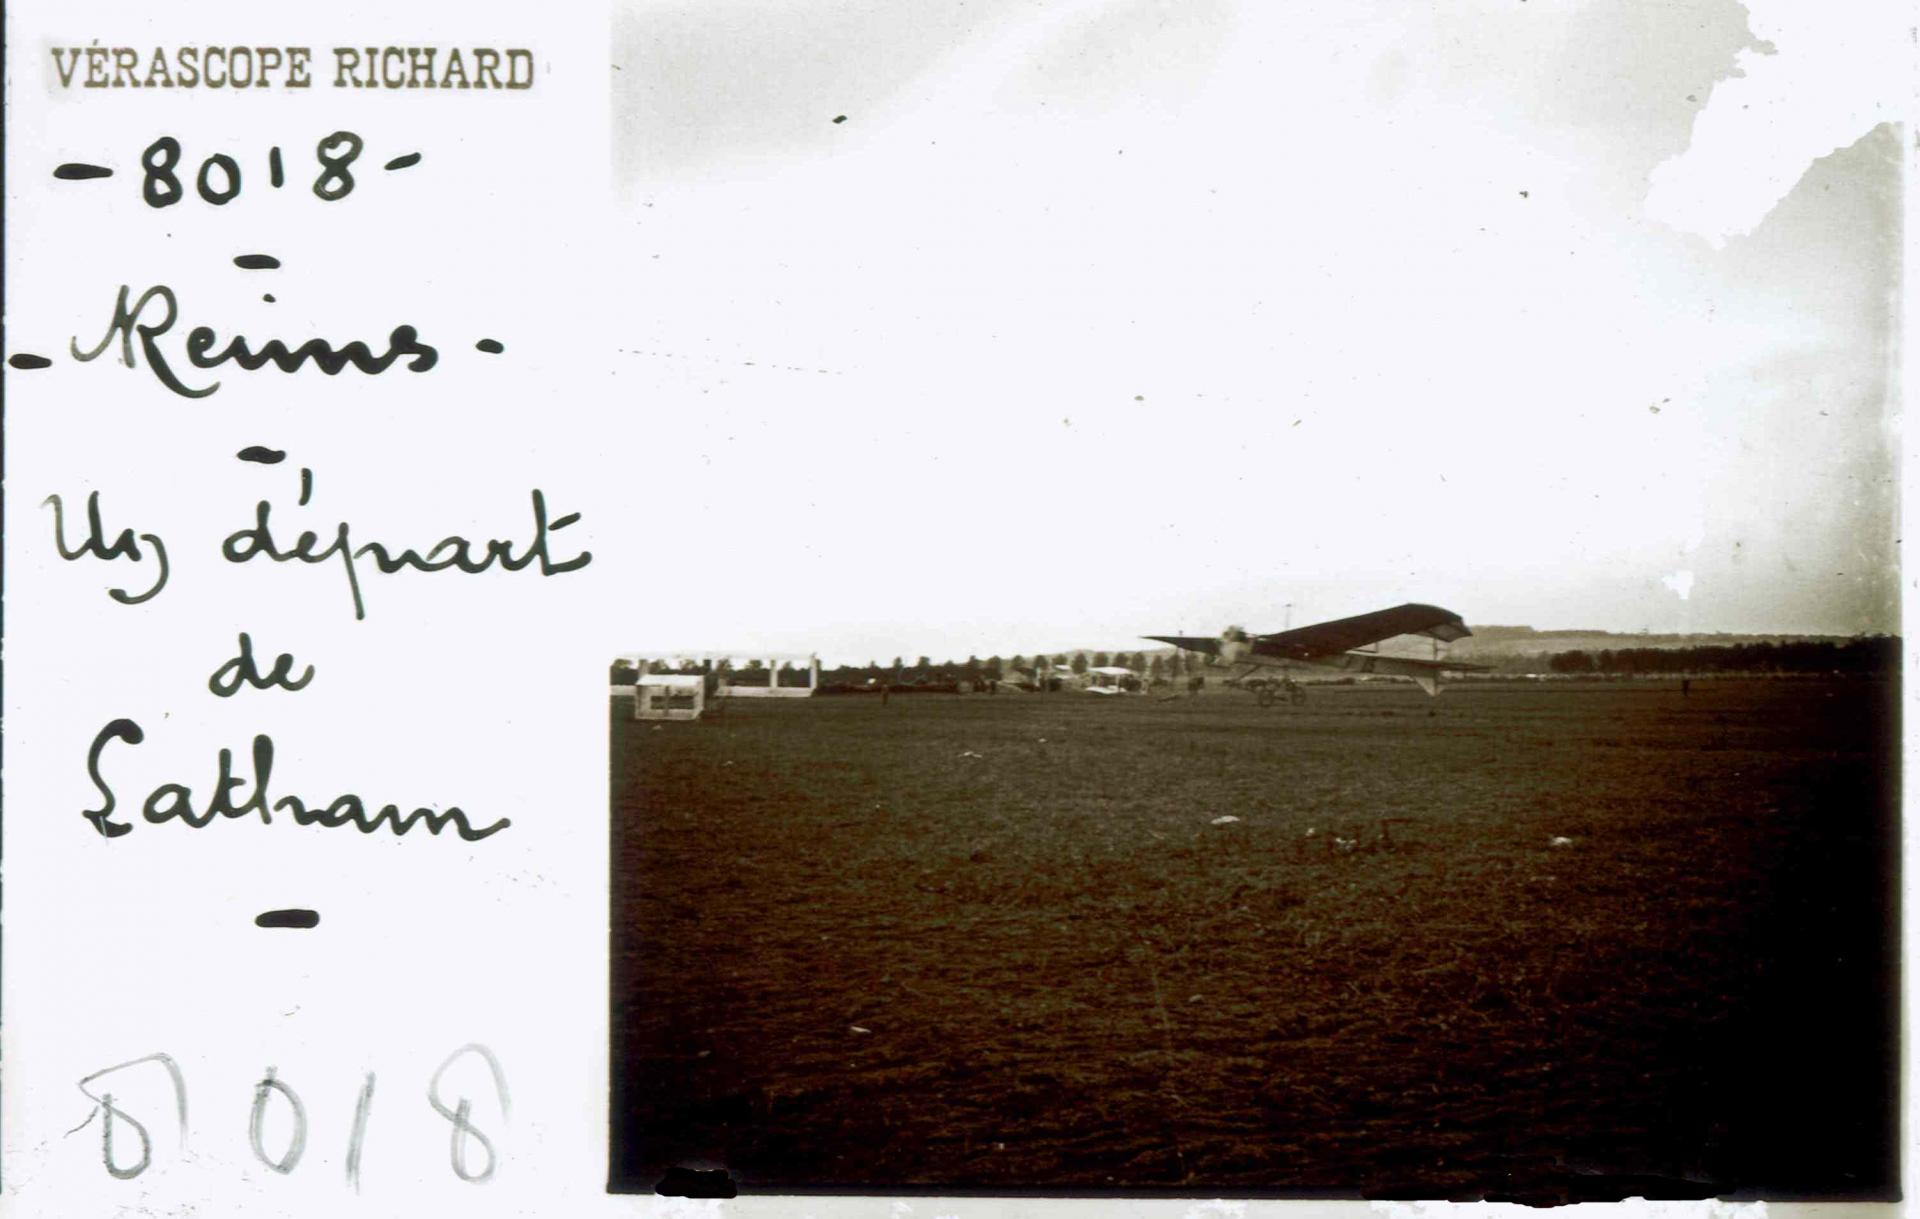 VÉRASCOPE RICHARD
- 8018 -
- Reims -
Un départ
de
Latham
8018